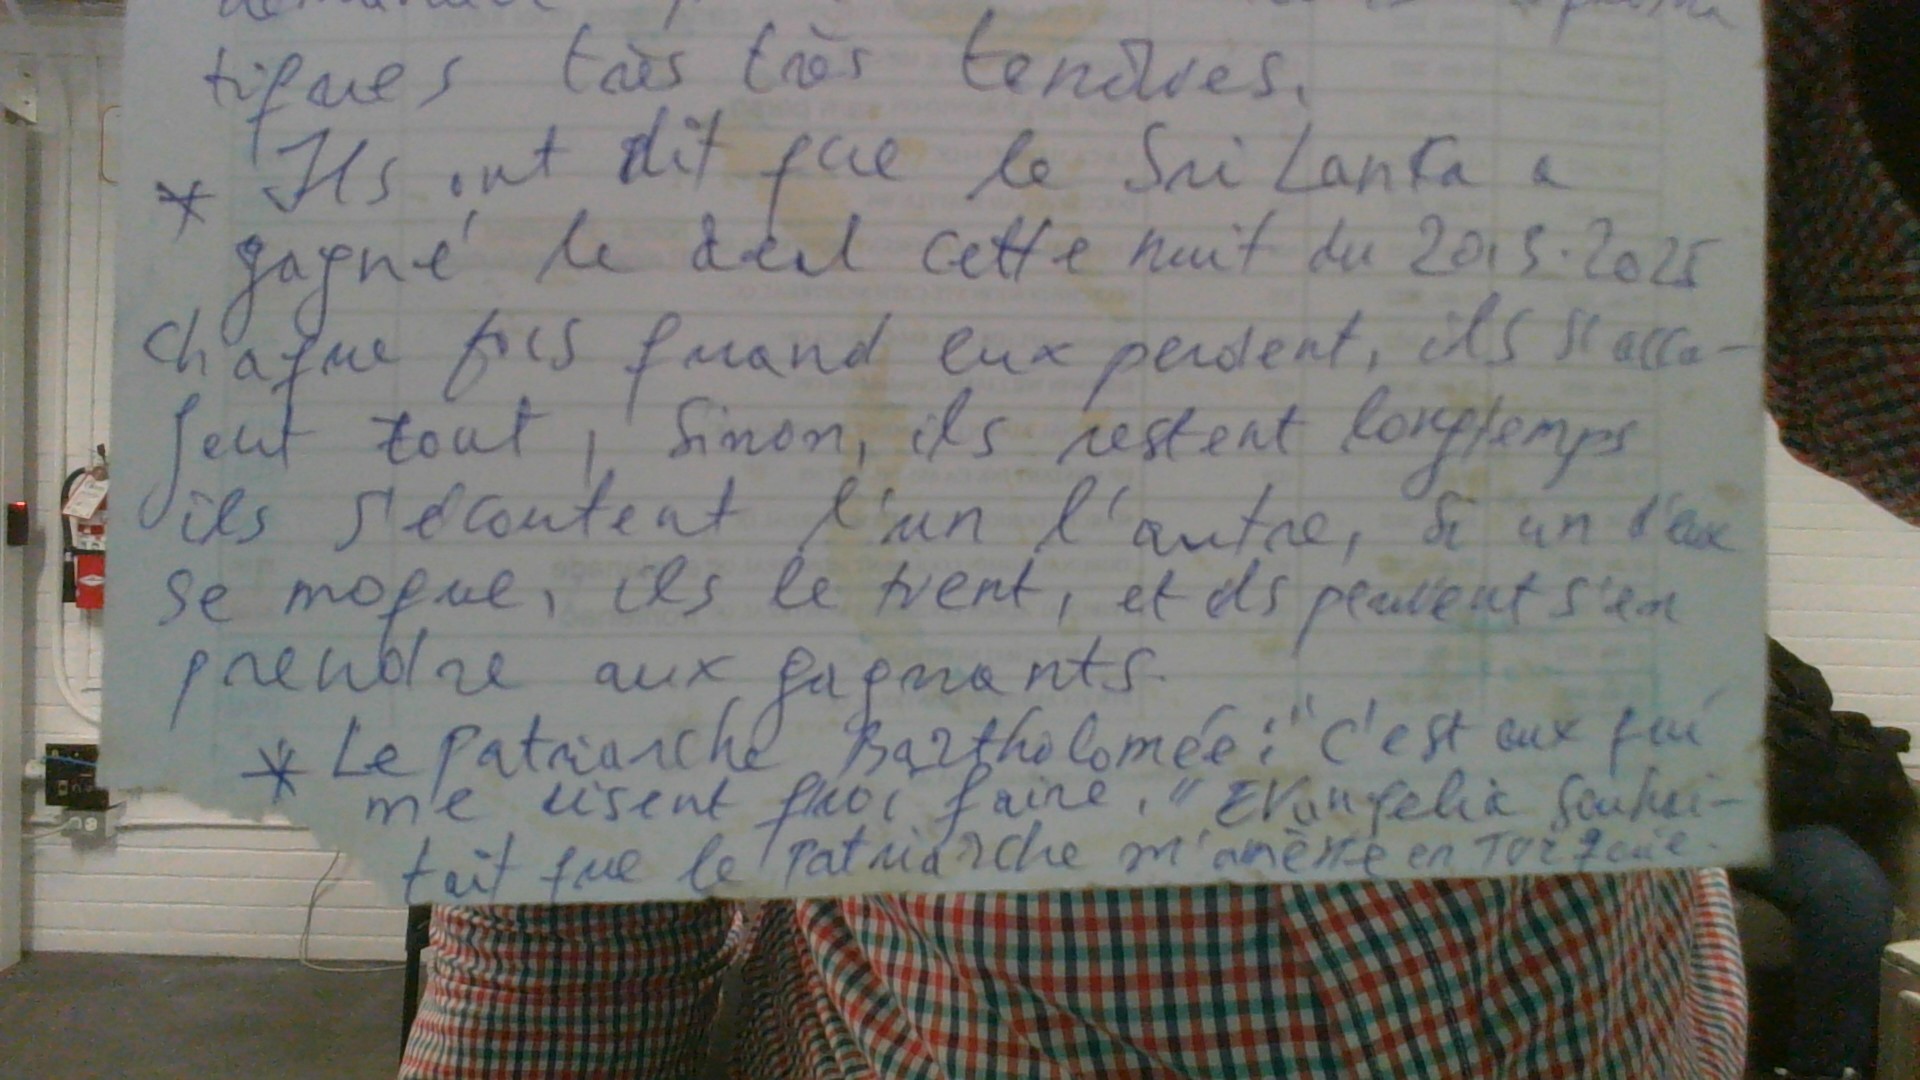 tiques très très tendres.
* Ils ont dit que le Sri Lanka a
gagné le deal cette nuit du 20.5.2025
chaque fois quand eux perdent, ils s'acca-
parent tout, sinon, ils restent longtemps
ils s'écoutent l'un l'autre, si un d'eux
se moque, ils le tuent, et ils peuvent s'en
prendre aux gagnants.
* Le Patriarche Bartholomée: "C'est eux qui
me disent quoi faire." Evangelia souhai-
tait que le Patriarche m'amène en Turquie.